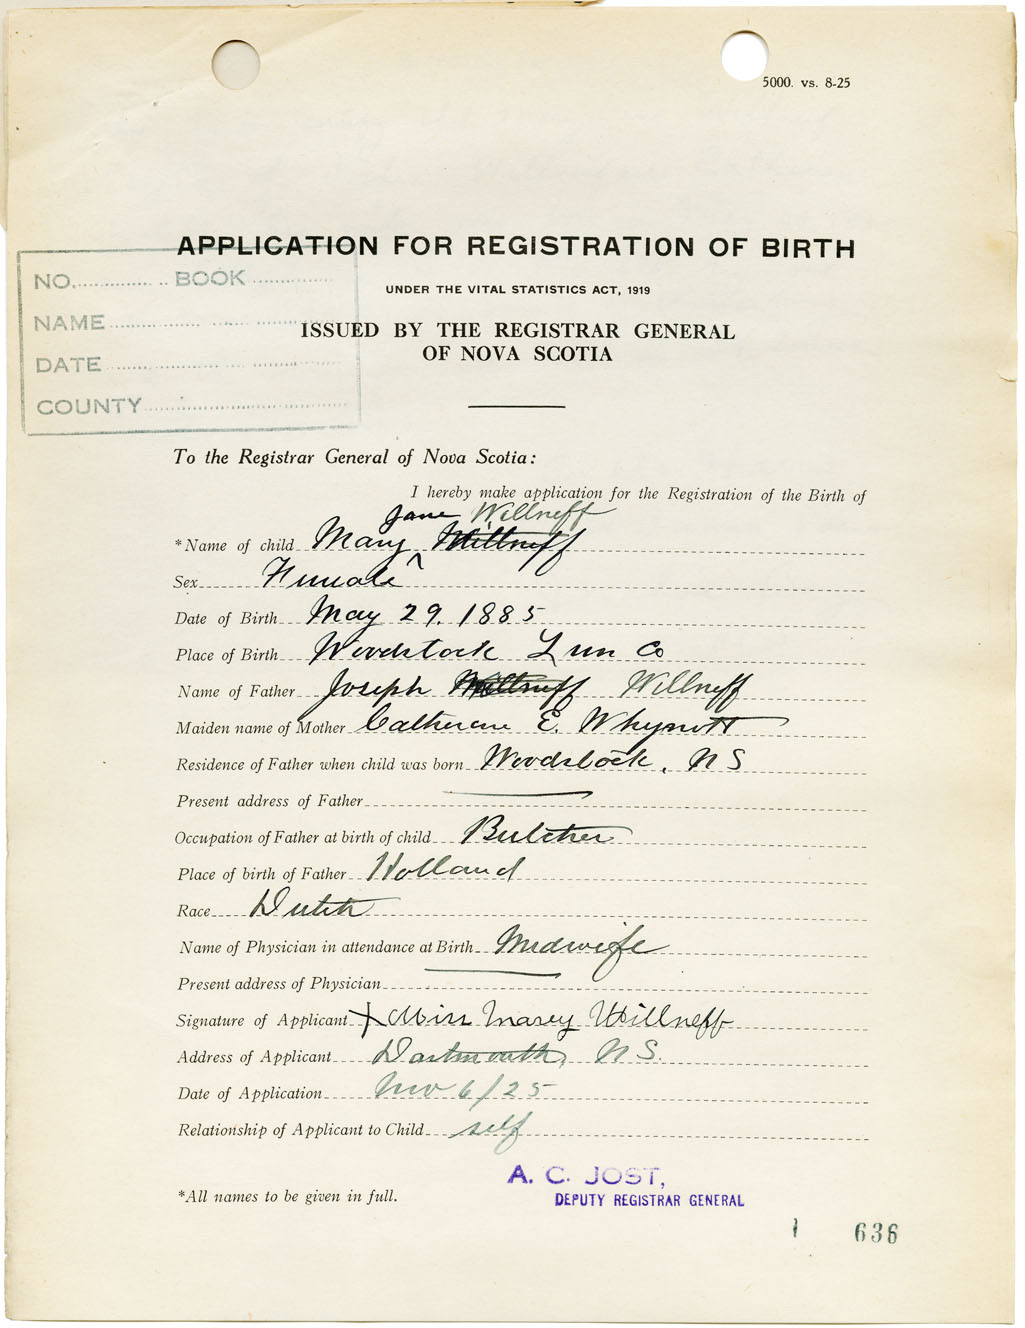 5000. vs. 8-25
APPLICATION FOR REGISTRATION OF BIRTH
NO. BOOK
UNDER THE VITAL STATISTICS ACT, 1919
NAME
ISSUED BY THE REGISTRAR GENERAL
OF NOVA SCOTIA
DATE
COUNTY
To the Registrar General of Nova Scotia:
I hereby make application for the Registration of the Birth of
Jane Willneff
*Name of child Mary
Sex Female
Date of Birth May 29. 1885
Place of Birth Woodstock Lun Co
Name of Father Joseph Willneff
Maiden name of Mother Catherine E. Whynott
Residence of Father when child was born Woodstock, N S
Present address of Father
Occupation of Father at birth of child Butcher
Place of birth of Father Holland
Race Dutch
Name of Physician in attendance at Birth Midwife
Present address of Physician
Signature of Applicant X Miss Mary Willneff
Address of Applicant Dartmouth, N S.
Date of Application Nov 6/25
Relationship of Applicant to Child self
A. C. JOST,
*All names to be given in full.
DEPUTY REGISTRAR GENERAL
636